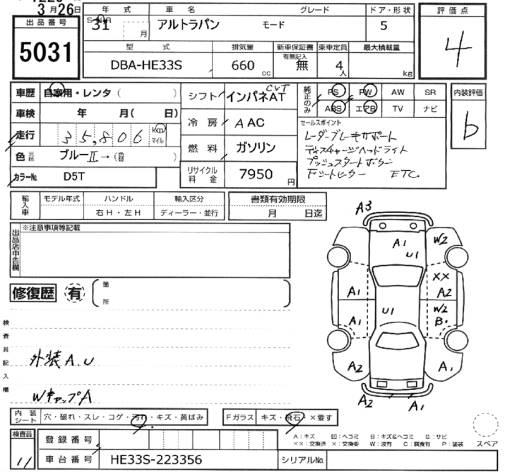 3月26日
出品番号
5031
年式 車名 グレード ドア・形状
31 月 アルトラパン モード 5
型式 排気量 新車保証書 乗車定員 最大積載量
有無記入
DBA-HE33S 660 cc 無 4人 kg
評価点
4
車歴 自家用・レンタ( )
車検 年 月( 日)
走行 35,800 Km マイル
色 ブルーII→( )
カラーNo D5T
シフト インパネAT CVT
冷房 A AC
燃料 ガソリン
リサイクル料金 7950円
純正のみ PS PW AW SR
ABS エアB TV ナビ
セールスポイント
レーダーブレーキサポート
ディスチャージヘッドライト
プッシュスタートボタン
シートヒーター ETC.
内装評価
b
輸入車 モデル年式 ハンドル 輸入区分
右H・左H ディーラー・並行
書類有効期限
月 日迄
出品店申告欄
※注意事項等記載
修復歴 有 箇所
検査員記入欄
外装A.U
WキャップA
A3
A1 U1 W2
XX
A1 U1 A2
W2
A1 B
A2 A1
A2 A1
内装シート 穴・破れ・スレ・コゲ・汚れ・キズ・黄ばみ
Fガラス キズ・飛石・×着す
検査員
11
登録番号
車台番号 HE33S-223356 シリアルNo.
A:キズ U:ヘコミ B:キズ&ヘコミ S:サビ
××:交換済 ×:交換要 W:波有 C:腐食有 P:塗装
スペア